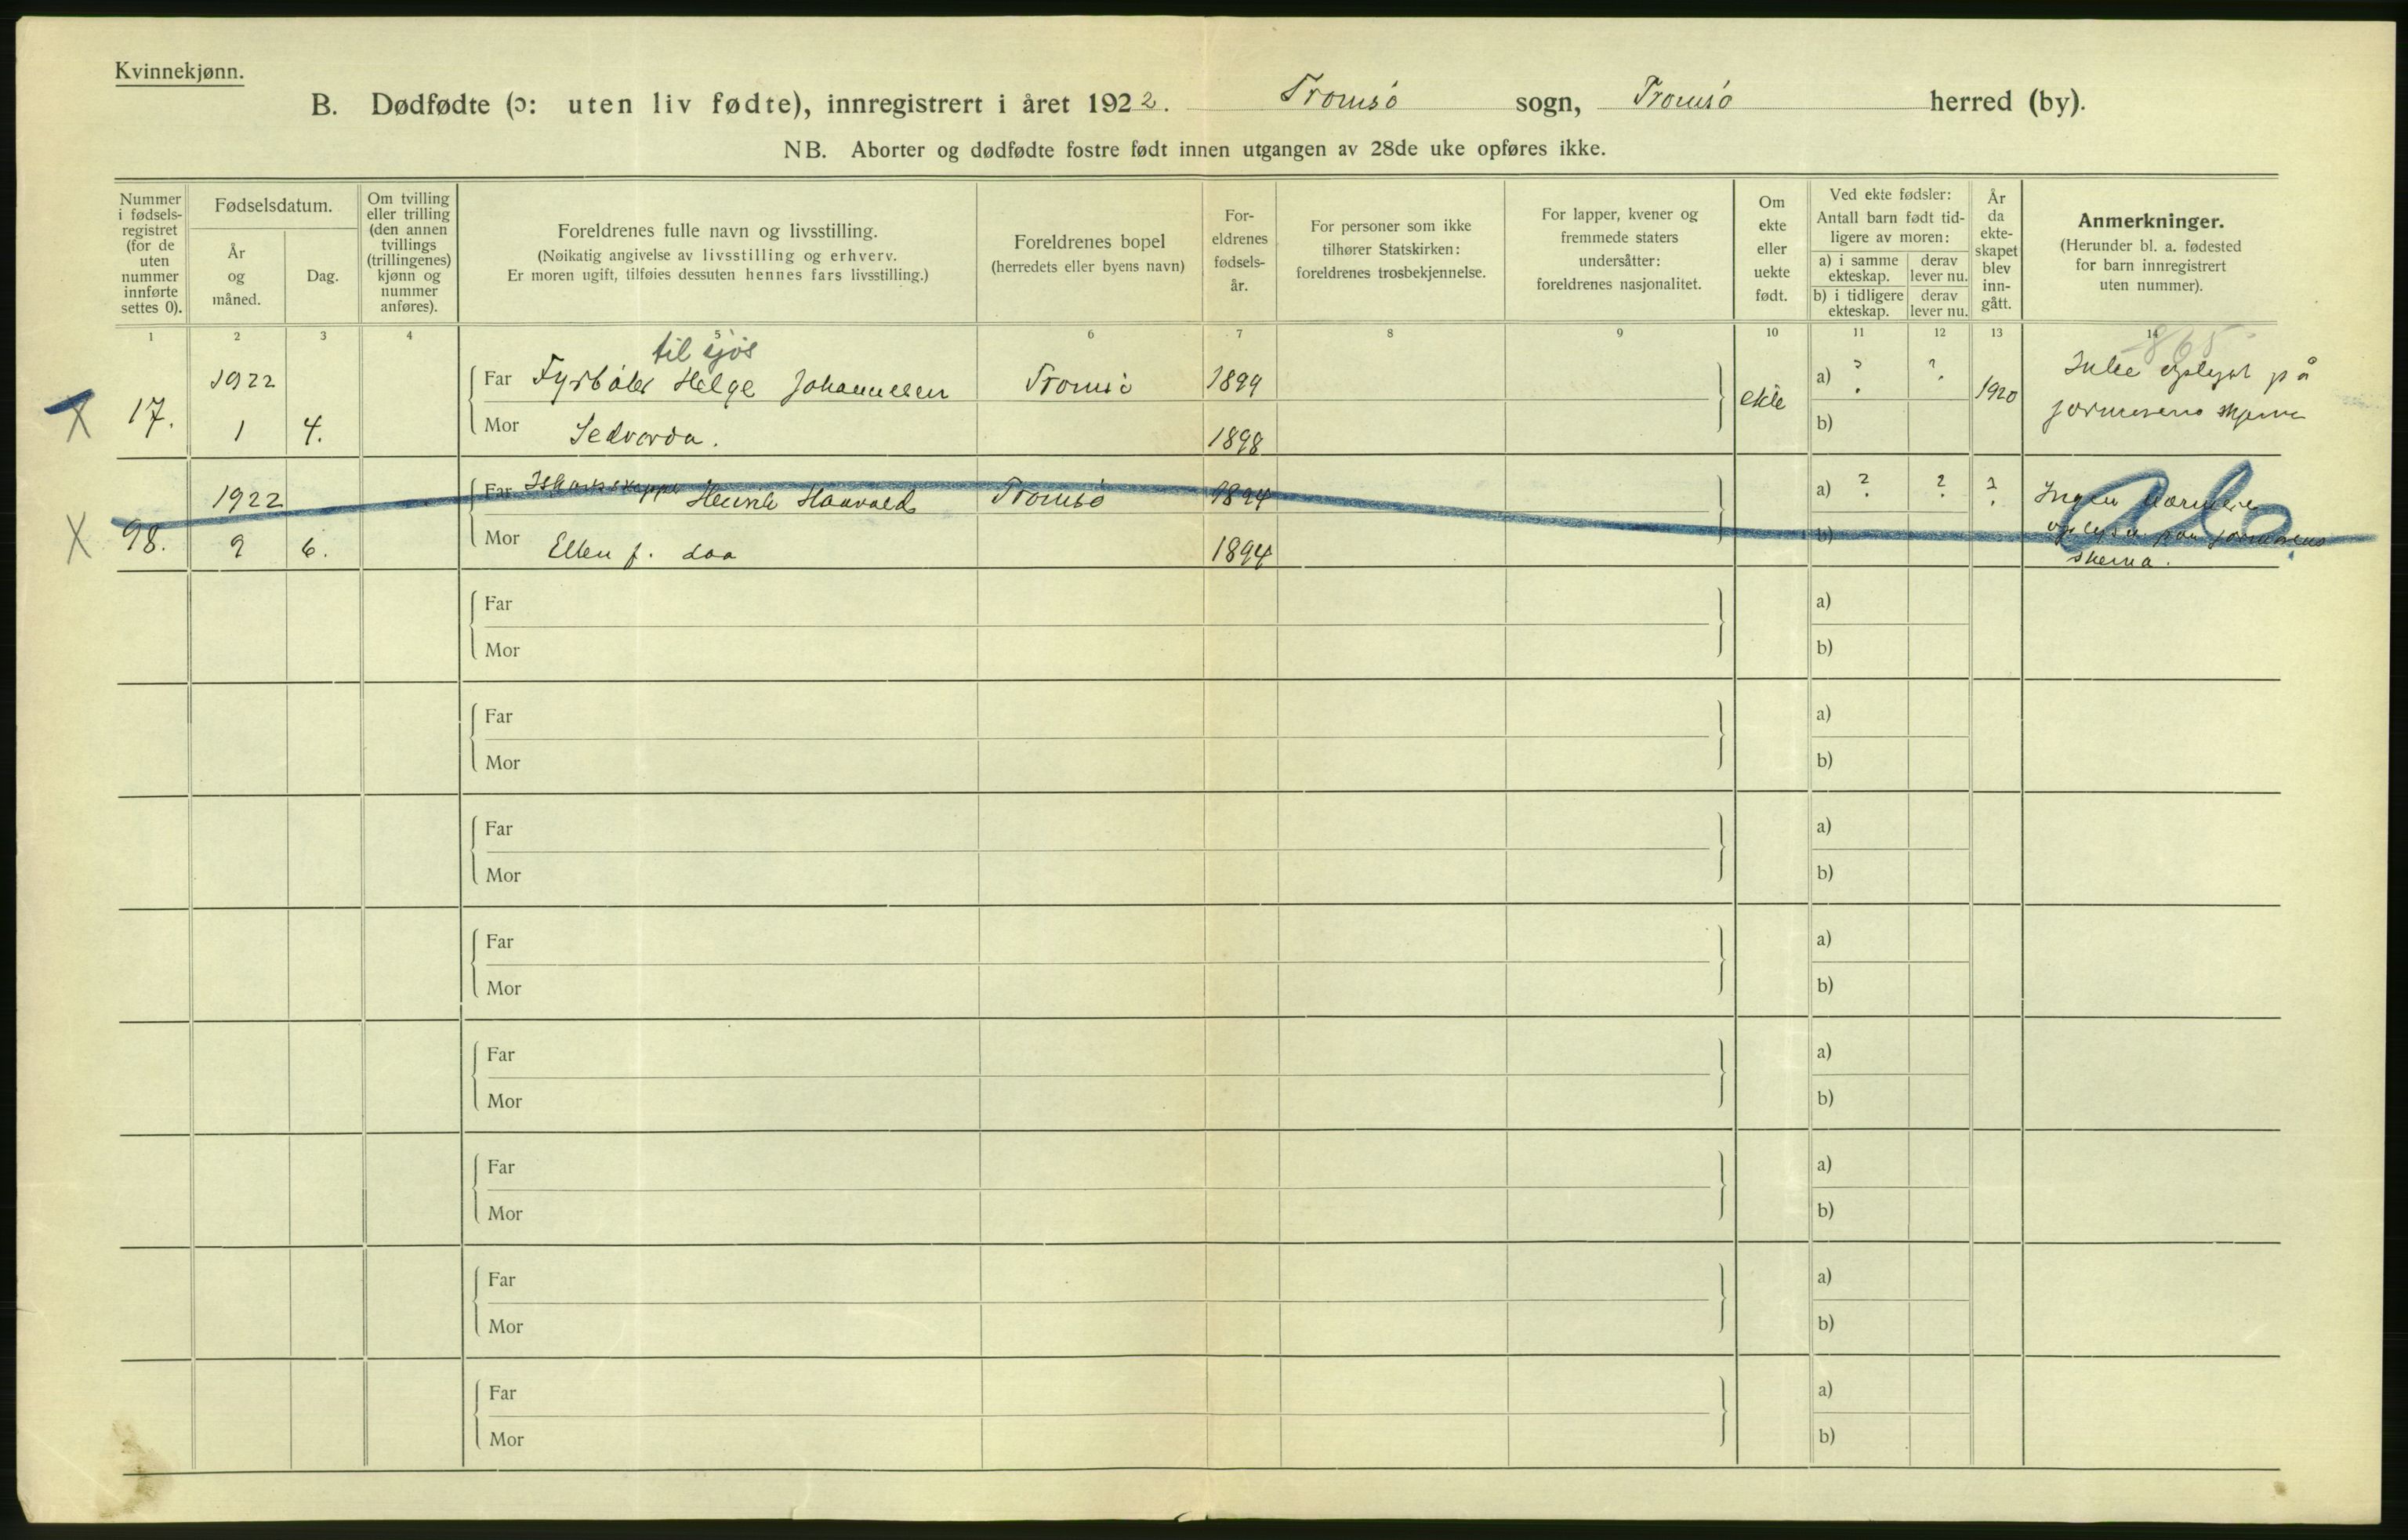 Kvinnekjønn.
B. Dødfødte (ɔ: uten liv fødte), innregistrert i året 1922. Tromsö sogn, Tromsö herred (by).
NB. Aborter og dødfødte fostre født innen utgangen av 28de uke opføres ikke.
Nummer
i fødsels-
registret
(for de
uten
nummer
innførte
settes 0).
Fødselsdatum.
År
og
måned.
Dag.
Om tvilling
eller trilling
(den annen
tvillings
(trillingenes)
kjønn og
nummer
anføres).
Foreldrenes fulle navn og livsstilling.
(Nøikatig angivelse av livsstilling og erhverv.
Er moren ugift, tilføies dessuten hennes fars livsstilling.)
Foreldrenes bopel
(herredets eller byens navn)
For-
eldrenes
fødsels-
år.
For personer som ikke
tilhører Statskirken:
foreldrenes trosbekjennelse.
For lapper, kvener og
fremmede staters
undersåtter:
foreldrenes nasjonalitet.
Om
ekte
eller
uekte
født.
Ved ekte fødsler:
Antall barn født tid-
ligere av moren:
a) i samme
ekteskap.
derav
lever nu.
b) i tidligere
ekteskap.
derav
lever nu.
År
da
ekte-
skapet
blev
inn-
gått.
Anmerkninger.
(Herunder bl. a. fødested
for barn innregistrert
uten nummer).
1 2 3 4 5 6 7 8 9 10 11 12 13 14
865
til sjøs
X 17. 1922 Far Fyrböter Helge Johannesen Tromsö 1899 ekte a) ? ? 1920 på
1 4. Mor 1898 b)
X 98. 1922 Far Henrik Haavold Tromsö 1894 a) ? ? ? Ingen nærmere
9 6. Mor Ellen f. daa 1894 b)
skema.
Far a)
Mor b)
Far a)
Mor b)
Far a)
Mor b)
Far a)
Mor b)
Far a)
Mor b)
Far a)
Mor b)
Far a)
Mor b)
Far a)
Mor b)